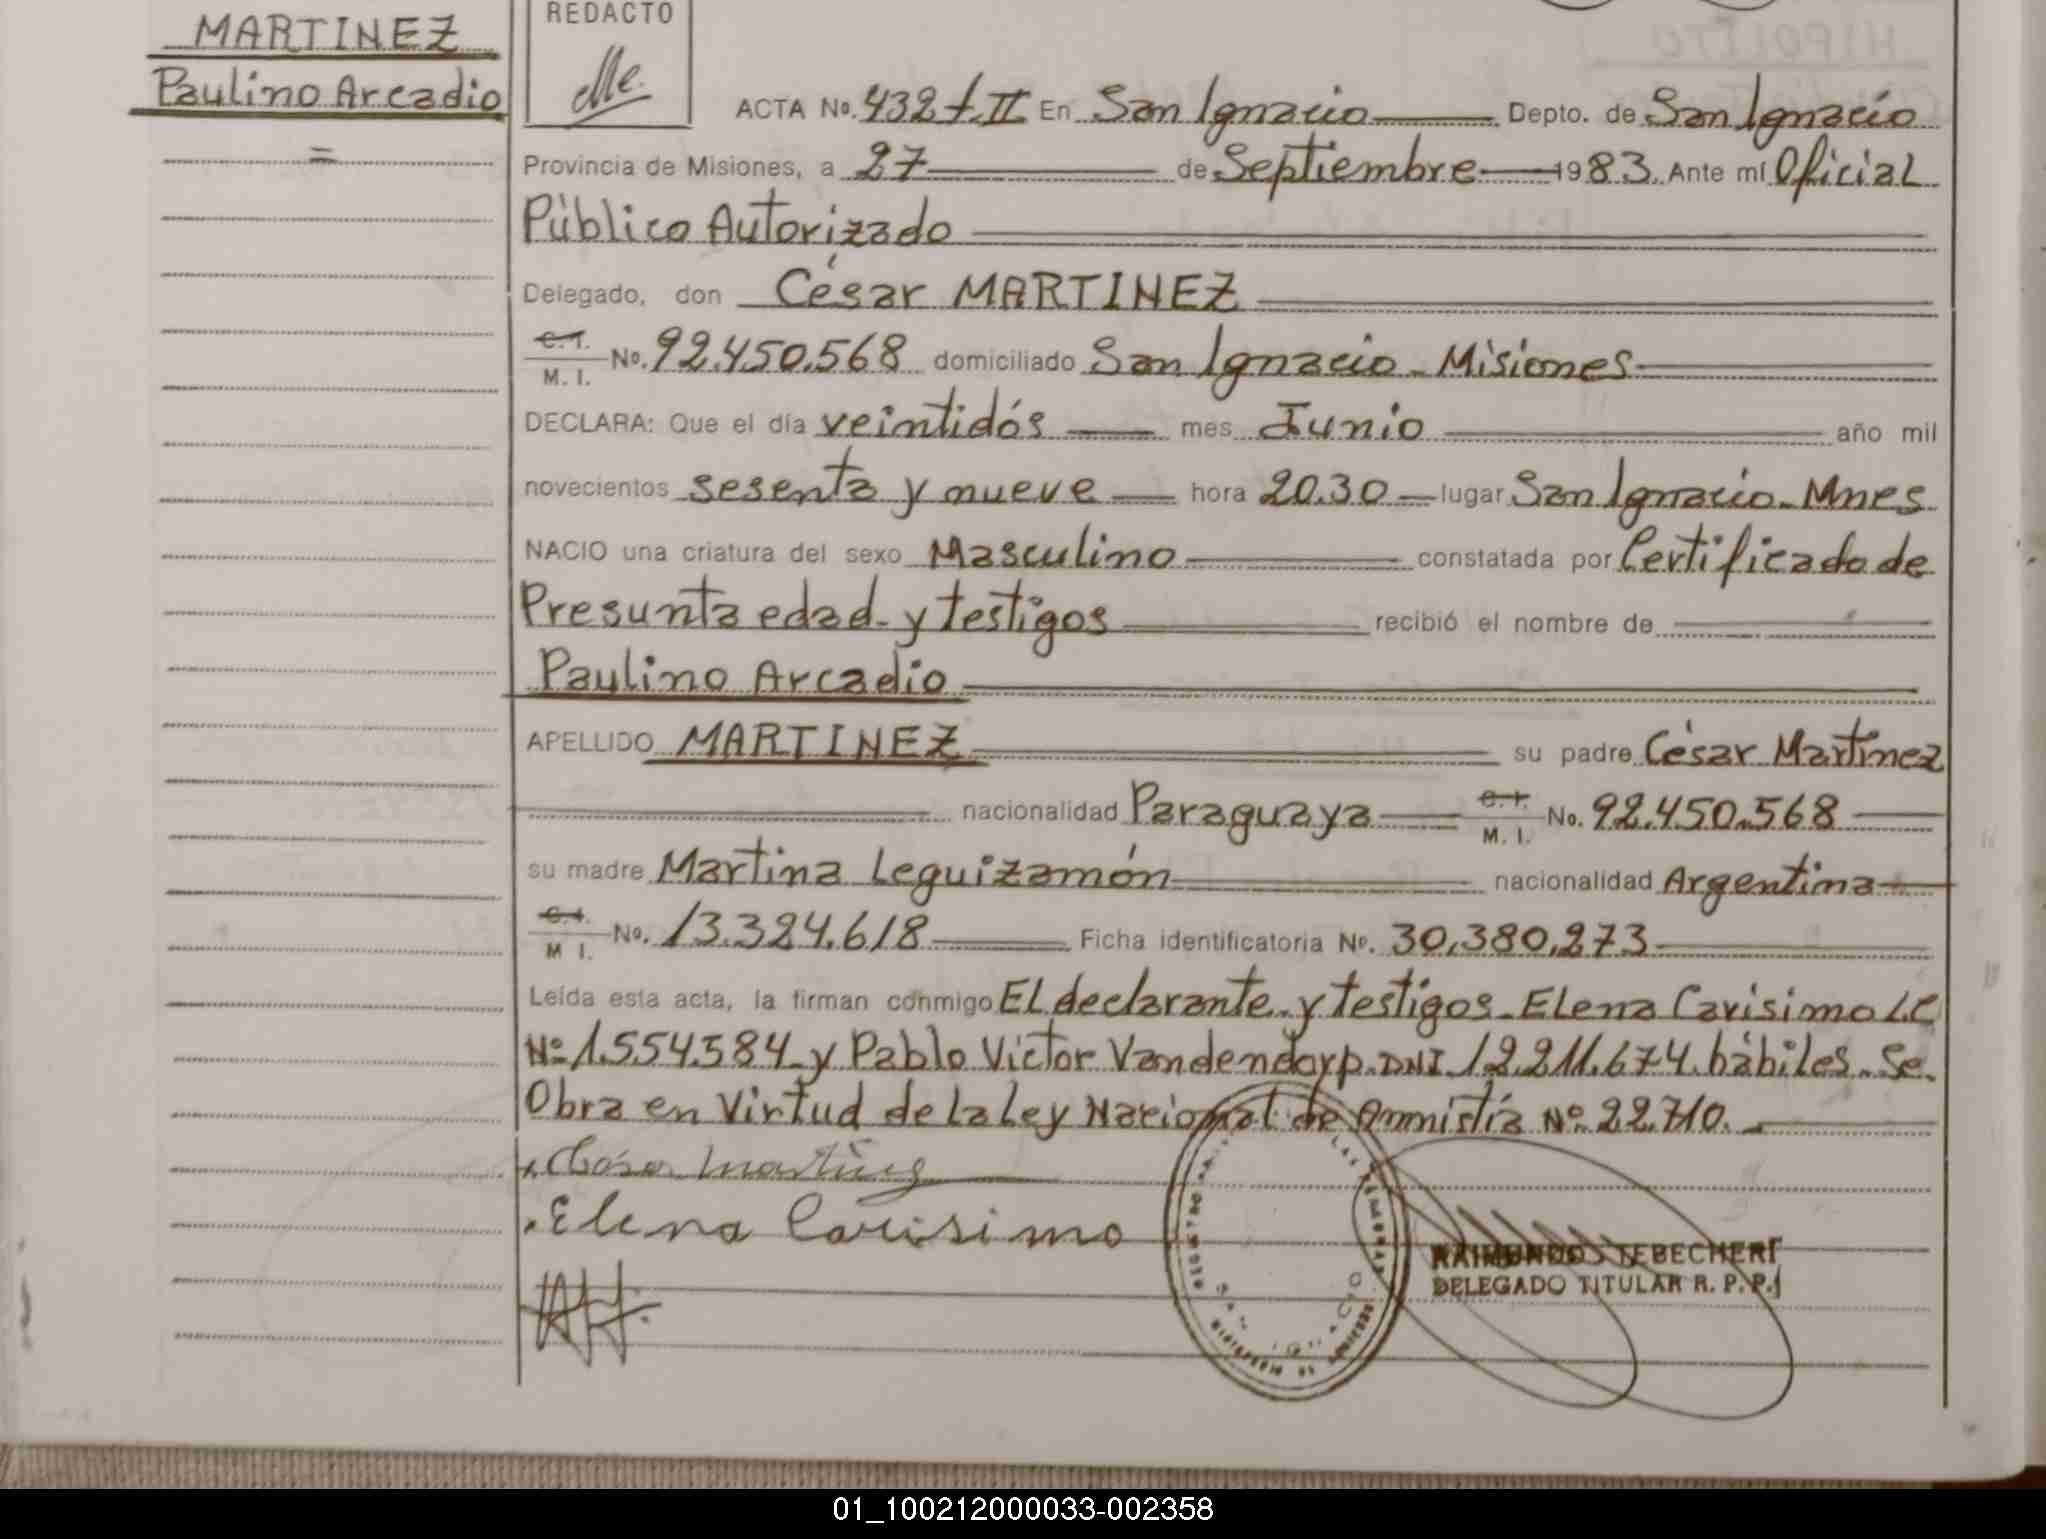 MARTINEZ
Paulino Arcadio
=
REDACTO
ACTA No. 432 t. II En San Ignacio Depto. de San Ignacio
Provincia de Misiones, a 27 de Septiembre 1983. Ante mí Oficial
Público Autorizado
Delegado, don César MARTINEZ
C. I. M. I. No. 92.450.568 domiciliado San Ignacio - Misiones
DECLARA: Que el día veintidós mes Junio año mil
novecientos sesenta y nueve hora 20.30 lugar San Ignacio - Mnes
NACIO una criatura del sexo Masculino constatada por Certificado de
Presunta edad y testigos recibió el nombre de
Paulino Arcadio
APELLIDO MARTINEZ su padre César Martínez
nacionalidad Paraguaya C. I. M. I. No. 92.450.568
su madre Martina Leguizamón nacionalidad Argentina
C. I. M I. No. 13.324.618 Ficha identificatoria No. 30.380.273
Leída esta acta, la firman conmigo El declarante y testigos - Elena Carisimo L.C
Nº 1.554.584 y Pablo Victor Vandendorp. DNI 12.211.674. hábiles. Se.
Obra en Virtud de la Ley Nacional de Amnistía Nº 22.710.
Elena Carisimo
RAIMUNDO TEBECHERI
DELEGADO TITULAR R. P. P.
01_100212000033-002358